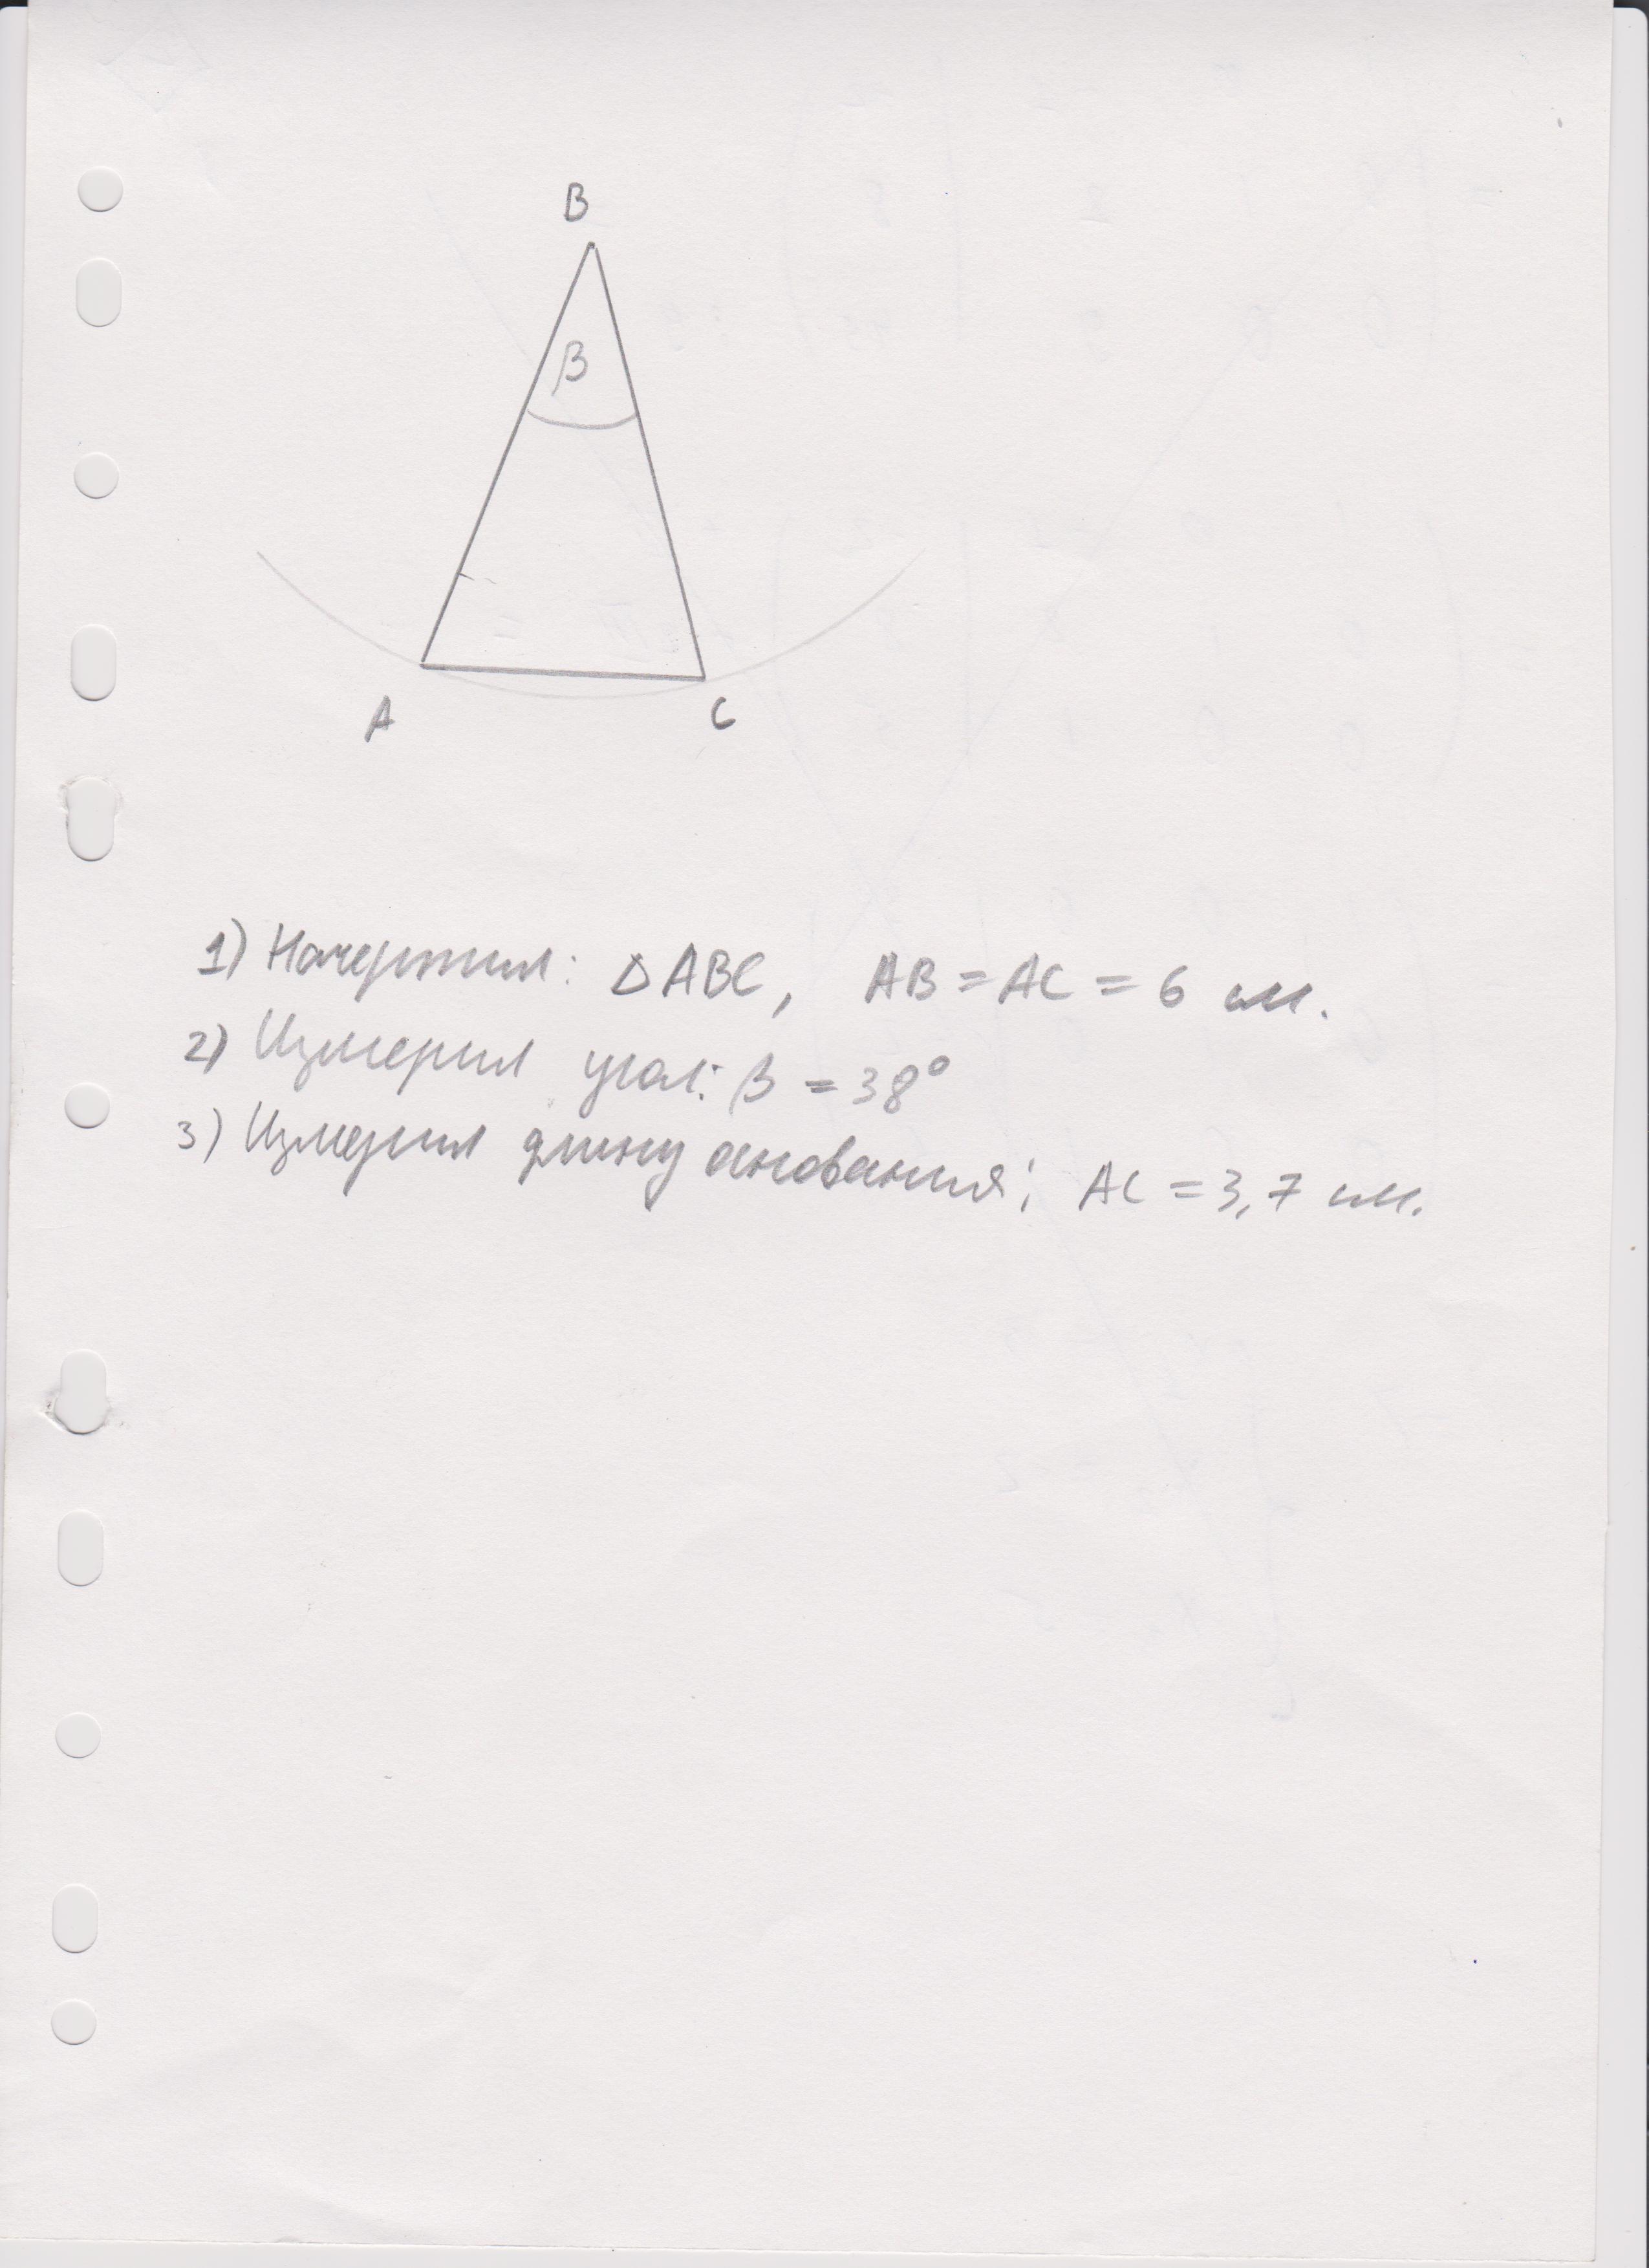 B
β
A
C
1) Начертил: △ABC, AB = AC = 6 см.
2) Измерил угол: β = 38°
3) Измерил длину основания: AC = 3,7 см.